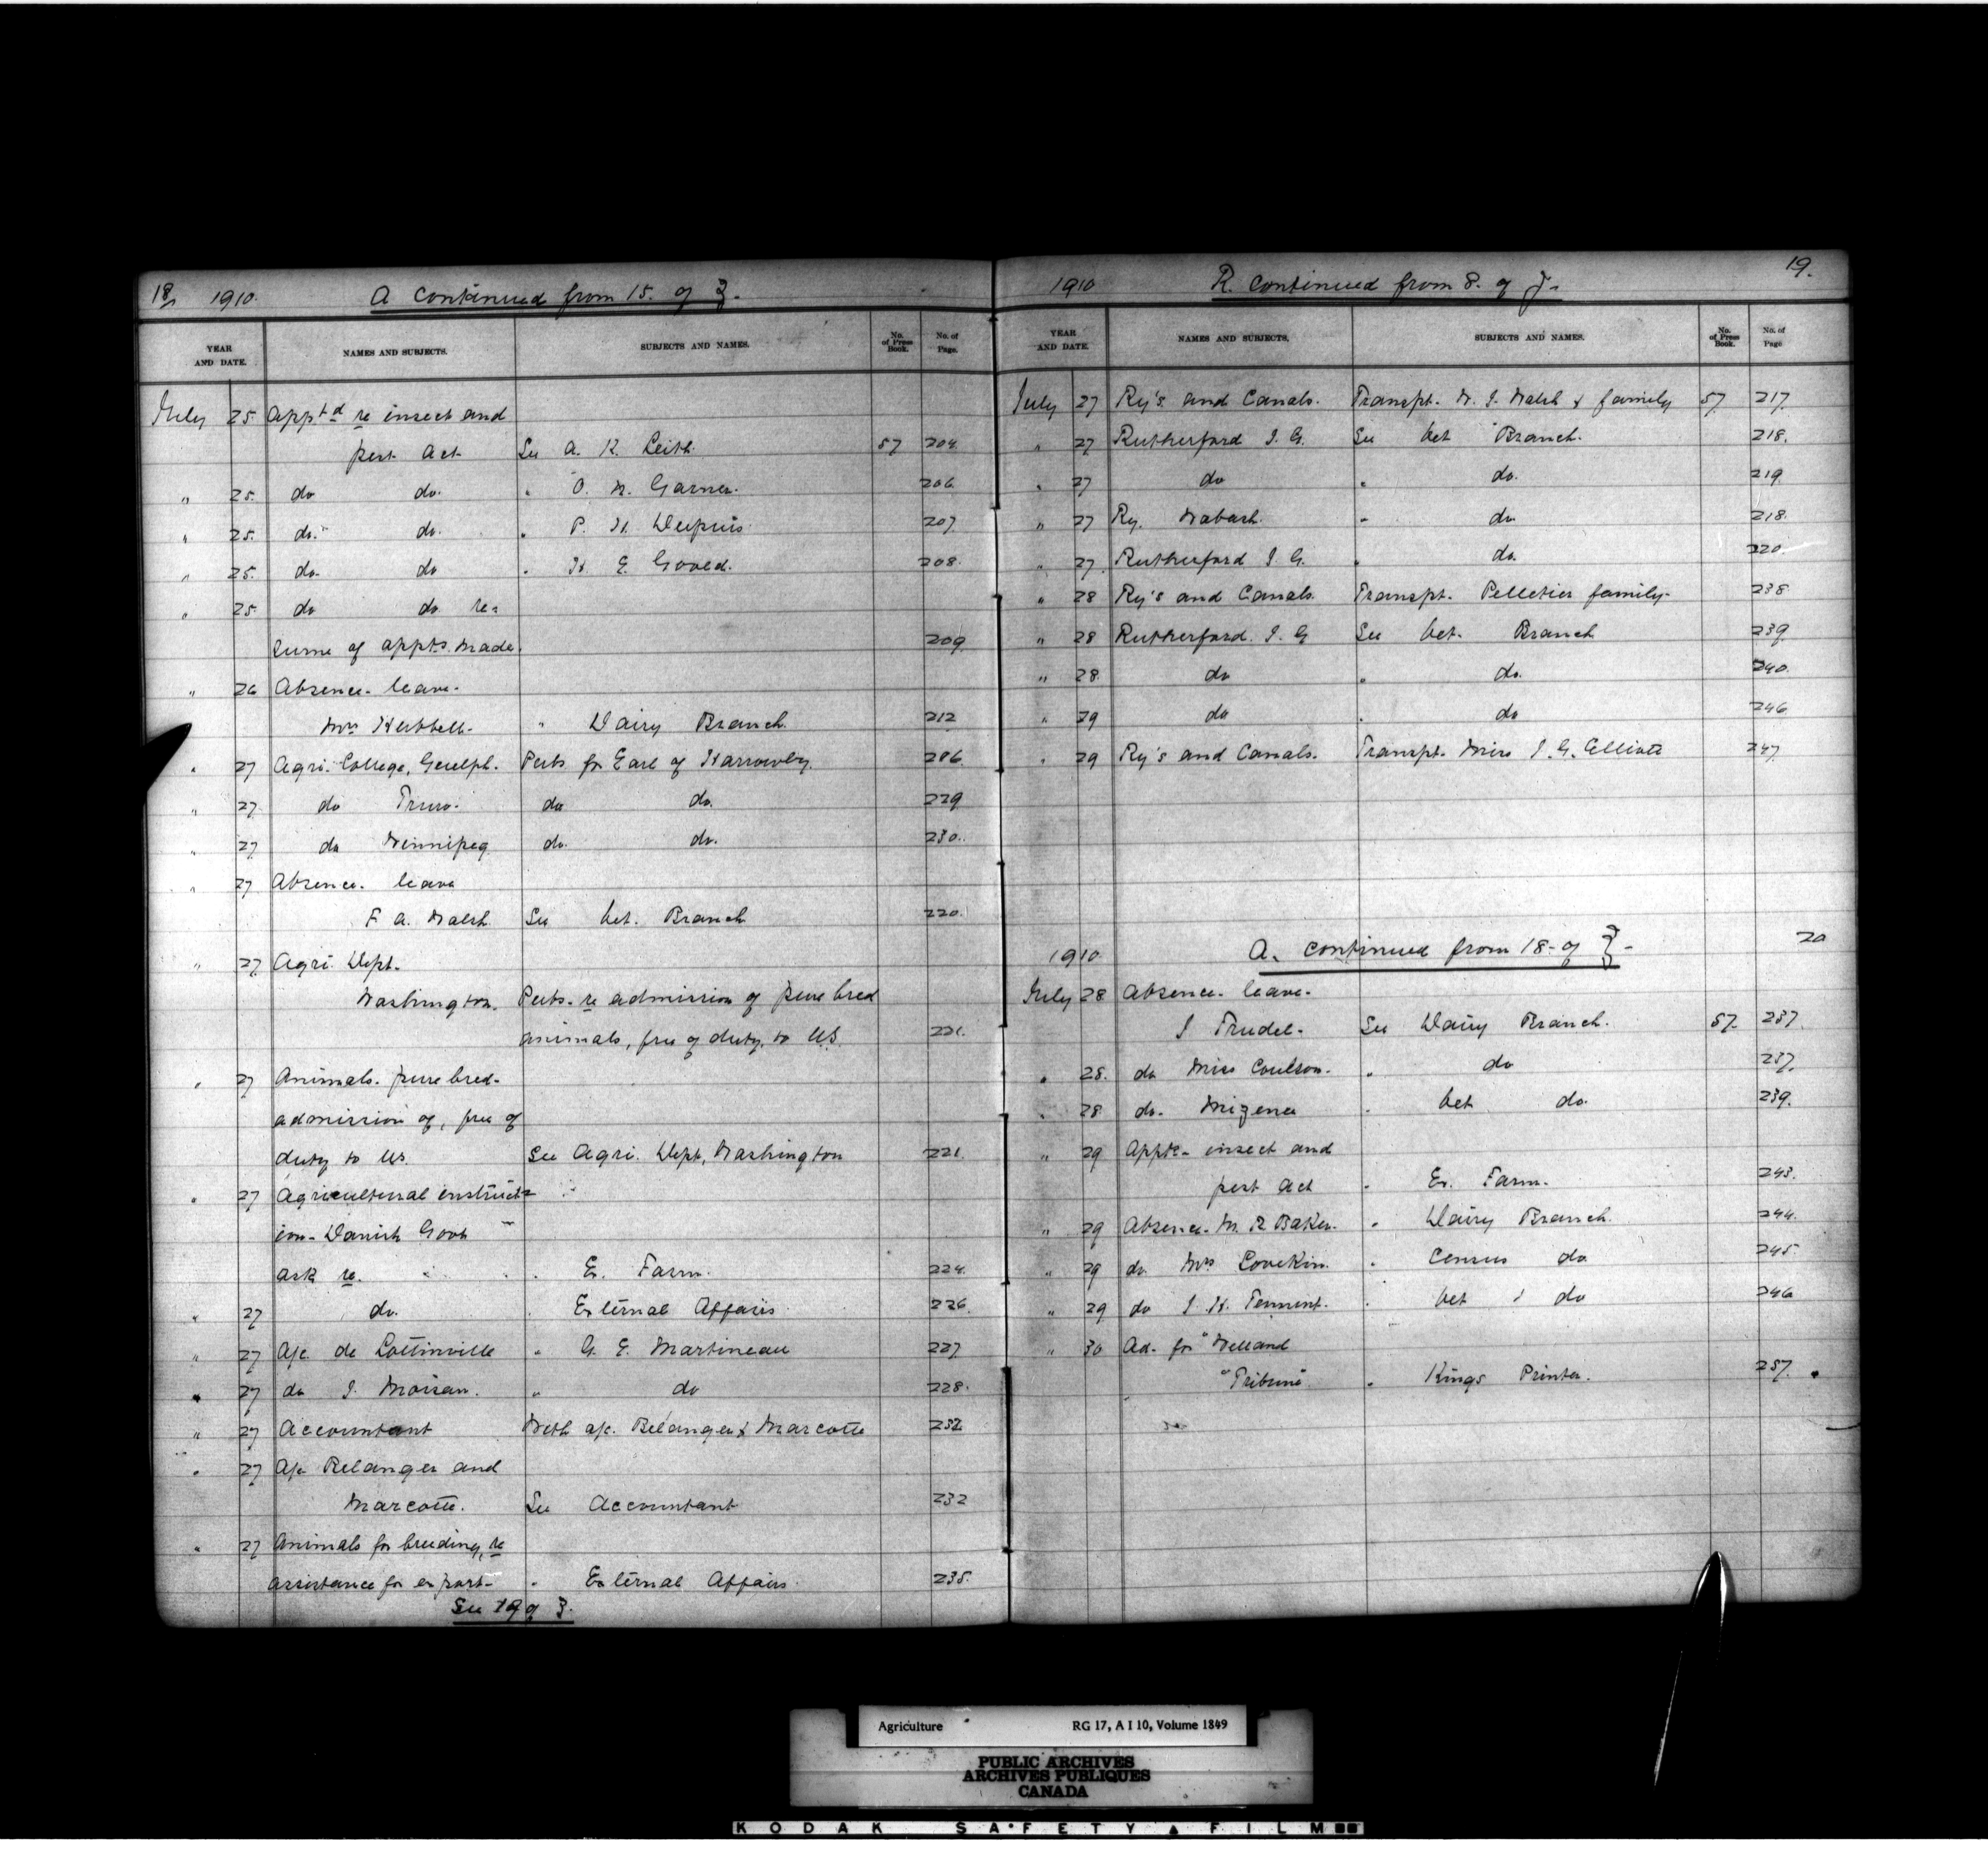 18 1910. A continued from 15. of 3.
YEAR AND DATE. NAMES AND SUBJECTS. SUBJECTS AND NAMES. No. of Press Book. No. of Page.
July 25. Appt.d re insect and
pest Act See A. K. Leith. 57 204.
" 25. do do. " O. W. Garner. 206.
" 25. do. do. " P. H. Dupuis 207.
" 25. do. do " H E. Good. 208.
" 25. do do re-
sume of appts. made. 209.
" 26 Absence - leave -
Mrs Hubbell - " Dairy Branch. 212
" 27 Agri. College, Guelph. Pubs for Earl of Harrowby. 286.
" 27. do Truro. do do. 229
" 27 do Winnipeg do. do. 230.
" 27 Absence - leave
F A. Walsh. See Vet. Branch 220.
" 27. Agri. Dept.
Washington. Pubs - re admission of pure bred
animals, free of duty, to U.S. 221.
" 27 Animals - pure bred -
admission of, free of
duty to U.S. See Agri. Dept, Washington 221.
" 27 Agricultural instruct-
ion - Danish Govt
ask re. " Ex. Farm. 224.
" 27 do. " External Affairs 226.
" 27 A/c. de Lottinville " G. E. Martineau 227.
" 27 do J. Moisan. " do 228.
" 27 Accountant With a/c. Belanger & Marcotte 232
" 27 A/c Belanger and
Marcotte. See Accountant 232
" 27 Animals for breeding, re
assistance for export - " External Affairs. 235.
See 19 of 3.
1910 R. continued from 8. of 19.
YEAR AND DATE. NAMES AND SUBJECTS. SUBJECTS AND NAMES. No. of Press Book. No. of Page
July 27 Ry's and Canals. Transpt. W. J. Walsh & family 57. 217.
" 27 Rutherford J. G. See Vet Branch. 218.
" 27 do " do. 219.
" 27 Ry. Wabash. " do 218.
" 27. Rutherford J. G. " do. 220.
" 28 Ry's and Canals. Transpt. Pelletier family - 238.
" 28 Rutherford. J. G See Vet. Branch 239.
" 28. do " do. 240.
" 29 do " do 246.
" 29 Ry's and Canals. Transpt. Miss J. G. Elliott 247.
1910. A. continued from 18 - of 3 - 20
July 28 Absence - leave -
J Trudel - See Dairy Branch. 57. 237.
" 28. do Miss Coulson. " do 237.
" 28 do. Mizener " Vet do. 239.
" 29 Appts - insect and
pest act " Ex. Farm. 243.
" 29 Absence - M. R Baker. " Dairy Branch. 244.
" 29 do Mrs Lovekin. " Census do 245.
" 29 do J. H. Tennent. " Vet do 246
" 30 Ad - for "Welland
"Tribune" " Kings Printer. 257.
Agriculture RG 17, A I 10, Volume 1849
PUBLIC ARCHIVES
ARCHIVES PUBLIQUES
CANADA
KODAK SAFETY FILM